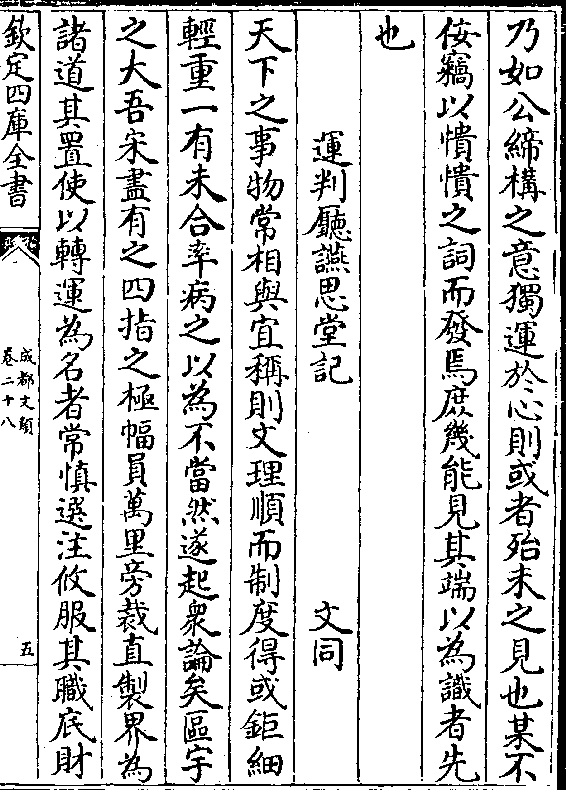 乃如公締構之意獨運於心則或者殆未之見也某不
佞竊以憒憒之詞而發焉庶幾能見其端以為識者先
也
運判廳讌思堂記 文同
天下之事物常相與宜稱則文理順而制度得或鉅細
輕重一有未合率病之以為不當然遂起衆論矣區宇
之大吾宋盡有之四指之極幅員萬里旁裁直製界為
諸道其置使以轉運為名者常慎選注攸服其職底財
欽定四庫全書
成都文類
卷二十八
五